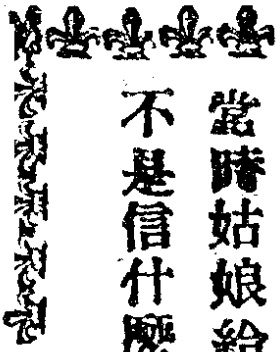 當時姑娘給
不是信什麼